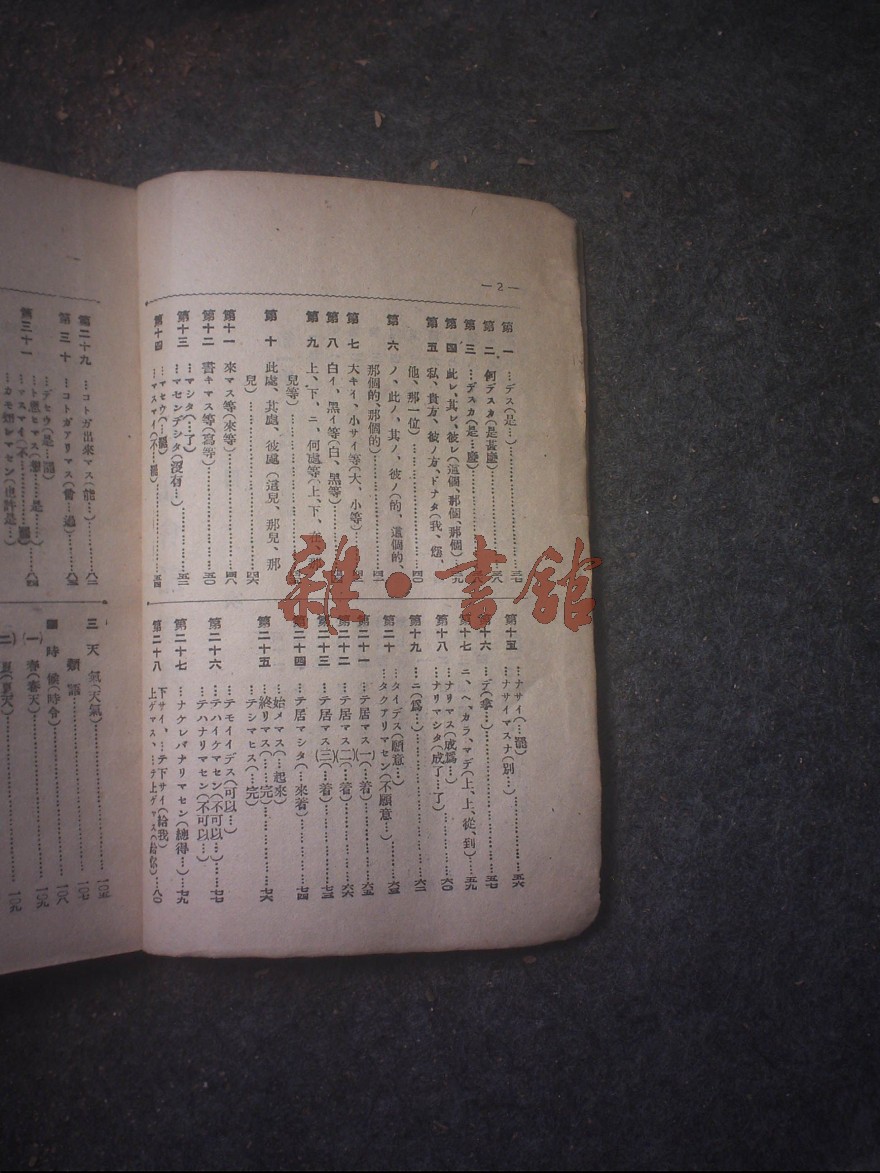 — 2 —
第一 …デス(是…)……三七
第二 何デスカ(是甚麼)……三八
第三 …デスカ(是…麼)……三八
第四 此レ、其レ、彼レ(這個、那個、那個)……三九
第五 私、貴方、彼ノ方、ドナタ(我、您、
他、那一位)……四〇
第六 ノ、此ノ、其ノ、彼ノ(的、這個的、
那個的、那個的)……四一
第七 大キイ、小サイ等(大、小等)……
第八 白イ、黒イ等(白、黑等)……
第九 上、下、ニ、何處等(上、下、在、那
兒等)……
第十 此處、其處、彼處(這兒、那兒、那
兒)……四六
第十一 來マス等(來等)……四八
第十二 書キマス等(寫等)……五〇
第十三 …マシタ(…了)
…マセンデシタ(沒有…)……五二
第十四 …マセウ(…罷)
…マスマイ(不…罷)……五四
第十五 …ナサイ(…罷)
…ナサイマスナ(別…)……五六
第十六 …デ(拿…)……五七
第十七 ニ、ヘ、カラ、マデ(上、上、從、到)……五九
第十八 …ナリマス(成爲…)
…ナリマシタ(成了…了)……六〇
第十九 …ニ(爲…)……六二
第二十 …タイデス(願意…)
…タクアリマセン(不願意…)……六三
第二十一 …テ居マス(一)(…着)……六五
第二十二 …テ居マス(二)(…着)……六六
第二十三 …テ居マス(三)(…着)……七三
第二十四 …テ居マシタ(…來着)……七四
第二十五 …始メマス(…起來)
…終リマス(…完)
…テシマヒス(…完)……七六
第二十六 …テモイイデス(可以…)
…テハイケマセン(不可以…)……七七
…テハナリマセン(不可以…)
第二十七 …ナケレバナリマセン(總得…)……七九
第二十八 下サイ、…テ下サイ(給我)
上ゲマス、…テ上ゲマス(給你)……八〇
第二十九 …コトガ出來マス(能…)……八二
第三十 …コトガアリマス(曾…過)……八三
第三十一 …デセウ(是…罷)
…ト思ヒマス(想…是…)
…マスマイ(不…罷)……八四
…カモ知レマセン(也許是…)
三 天氣(天氣)……一〇五
類語……一〇七
四 時候(時令)……一〇八
(一) 春(春天)……一〇九
(二) 夏(夏天)……一〇九
雜·書館